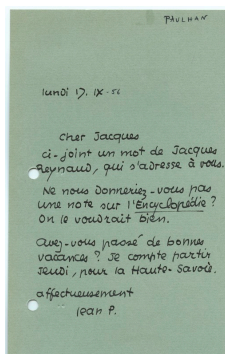 PAULHAN
lundi 17. IX. 56
Cher Jacques
ci-joint un mot de Jacques
Reynaud, qui s'adresse à vous.
Ne nous donneriez-vous pas
une note sur l'Encyclopédie ?
On le voudrait bien.
Avez-vous passé de bonnes
vacances ? Je compte partir
jeudi, pour la Haute-Savoie.
affectueusement
Jean P.